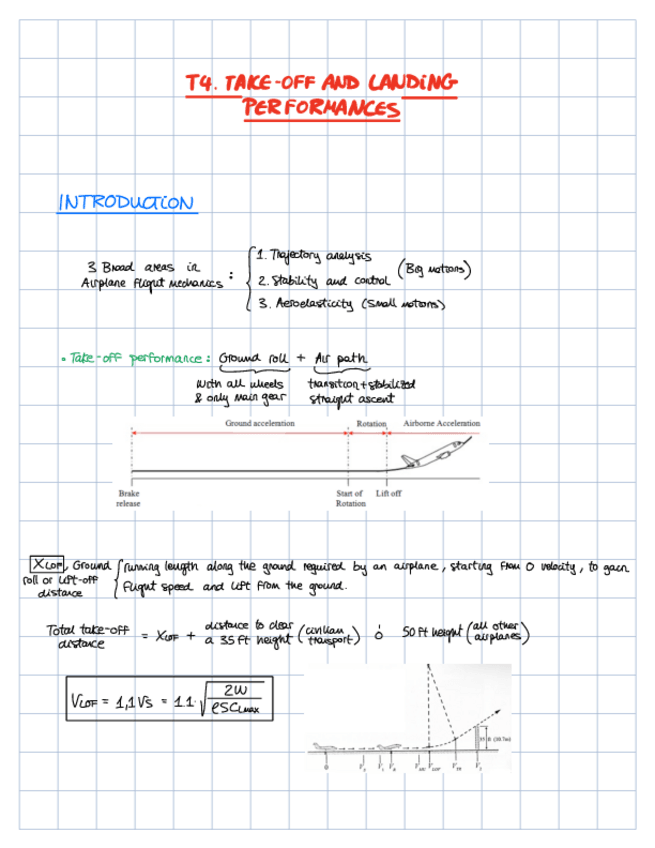 T4. TAKE-OFF AND LANDING
PERFORMANCES
INTRODUCTION
3 Broad areas in
Airplane Flight Mechanics :
1. Trajectory analysis
2. Stability and control
(Big motions)
3. Aeroelasticity (Small motions)
• Take-off performance: Ground roll + Air path
with all wheels
& only main gear
transition + stabilized
straight ascent
Ground acceleration Rotation Airborne Acceleration
Brake
release
Start of
Rotation
Lift off
XLOF, Ground
roll or Lift-off
distance
running length along the ground required by an airplane, starting from 0 velocity, to gain
flight speed and lift from the ground.
Total take-off
distance
= XLOF + distance to clear
a 35 ft height (civilian
transport) ó 50 ft height (all other
airplanes)
VLOF = 1,1 Vs = 1.1 · √(2W / ρSCLmax)